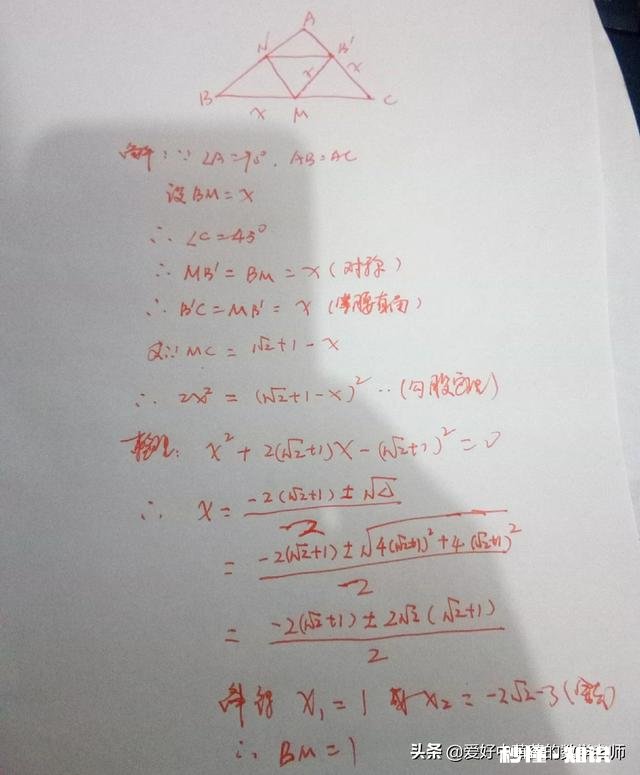 A
N
B'
x
x
B
M
C
x
解:∵∠A=90°, AB=AC
设BM=x
∴ ∠C=45°
∴ MB'=BM=x(对称)
∴ B'C=MB'=x(等腰直角)
又∵MC=√2+1-x
∴ 2x²=(√2+1-x)²··(勾股定理)
整理: x²+2(√2+1)x-(√2+1)²=0
∴ x=\frac{-2(√2+1)±√Δ}{2}
=\frac{-2(√2+1)±√4(√2+1)²+4(√2+1)²}{2}
=\frac{-2(√2+1)±2√2(√2+1)}{2}
解得 x₁=1 或 x₂=-2√2-3(舍去)
∴ BM=1
头条 @爱好
老师